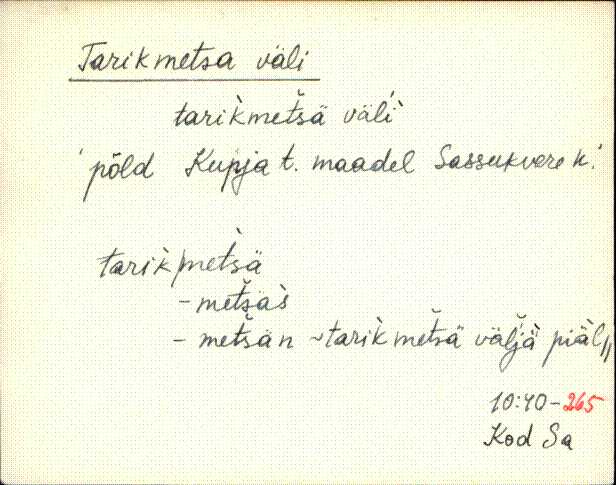 Tarikmetsa väli
tarìkmeťsä väĺì
'põld Kupja t. maadel Sassukvere k.'
tarìk|metsä
-meťsäs
-meťsän ~ tarìkmeťsä väljä piäl //
10:40-265
Kod Sa